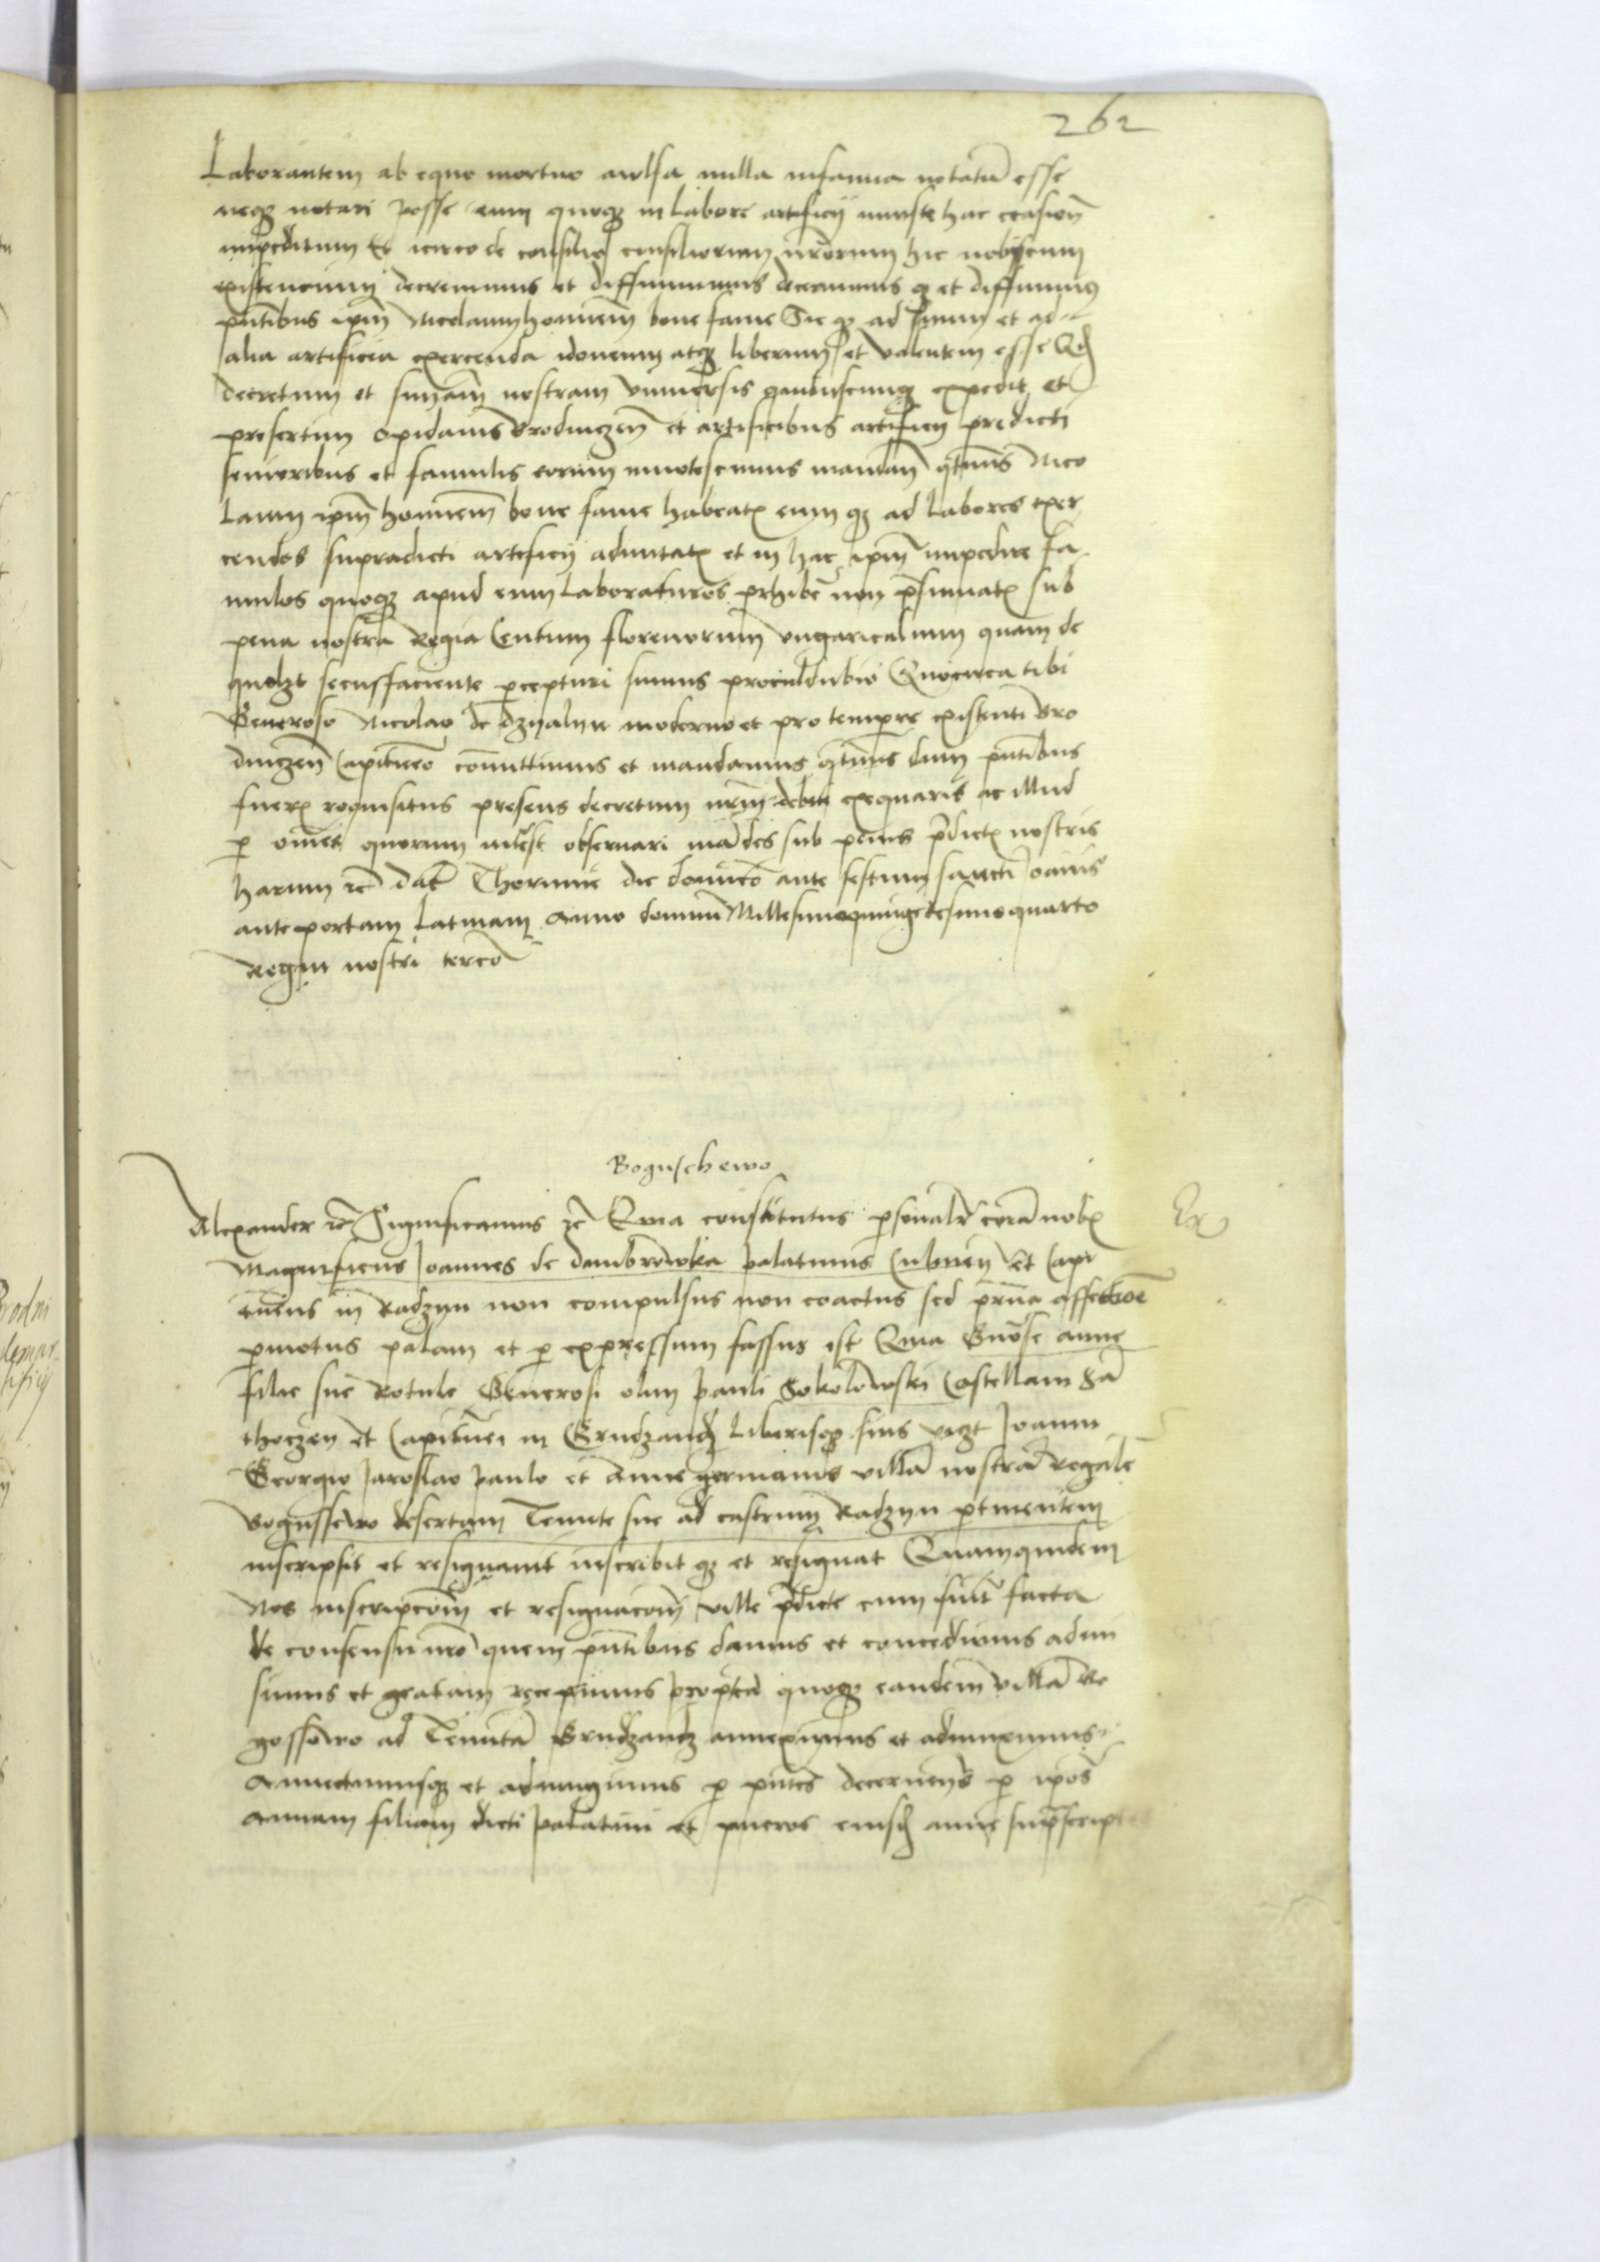 262
Laborantem ab equo mortuo avulsa nulla infamia notatū esse
neqȝ notari posse eum quoqȝ in labore artificij iniuste hac ocasione
impeditum Et icirco de consilio consiliorum nrorum hic nobiscum
existencium decrevimus et diffinivimus decernimusqȝ et diffinimus
pntibus ipm Nicolaum hominem bone fame Sicqȝ ad suum et ad
alia artificia exercenda idoneum atqȝ liberum et valentem esse
decretum et sniam nostram universis quibuscunqȝ expedit et
presertim opidanis Brodniczen et artificibus artificij predicti
senioribus et famulis eorum innotescimus mandan qtnus Nico
laum ipm hominem bone fame habeatis eumqȝ ad labores exer
cendos supradicti artificij admittatis et in hac ipm impedire fa
mulos quoqȝ apud eum laboraturos prohibe non psumatis sub
pena nostra Regia Centum florenorum ungaricalium quam de
quolȝt secusfaciente pcepturi sumus proculdubio Quocirca tibi
Generoso Nicolao de dzyalyn moderno et pro tempore existenti Bro
dniczen Capitaneo comittimus et mandamus qtnus dum pntibus
fueris requisitus presens decretum nrm debite exequaris ac illud
p omes quorum intest observari mādes sub penis pdictis nostris
harum ꝛc dat Thorunie die dominico ante festum sancti Joānis
ante portam latinam Anno domini Millesimoquingētesimoquarto
Regni nostri tercio
Boguschewo
Alexander ꝛc Significamus ꝛc Quia constitutus psonalr corā nobis
Magnificus Joannes de dambrowka palatinus Culmen et Capi
taneus in Radzyn non compulsus non coactus sed pria affectione
pmotus palam et p expressum fassus est Quia Gnose anne
filie sue Rotule Generosi olim pauli Sokolowski Castellani
et Capitanei in Grudzandz liberisqȝ suis vidȝt Joanni
Georgio Jaroslao paulo et Anne germanis villā nostrā Regale
Bogussewo desertam Tenute sue ad castrum Radzyn ptinentem
inscripsit et resignavit inscribitqȝ et resignat Quamquidem
Nos inscripcōm et resignacōm ville pdicte cum sint facta
de consensu nro quem pntibus damus et concedimus admi
simus et gratam recepimus proptea quoqȝ eandem villā Bo
gossewo ad Tenutā Grudzandz anneximus et adiunximus
Annectimusqȝ et adiungimus p pntes decernens p ipos
annam filiam dicti palatini et pueros eiusd anne